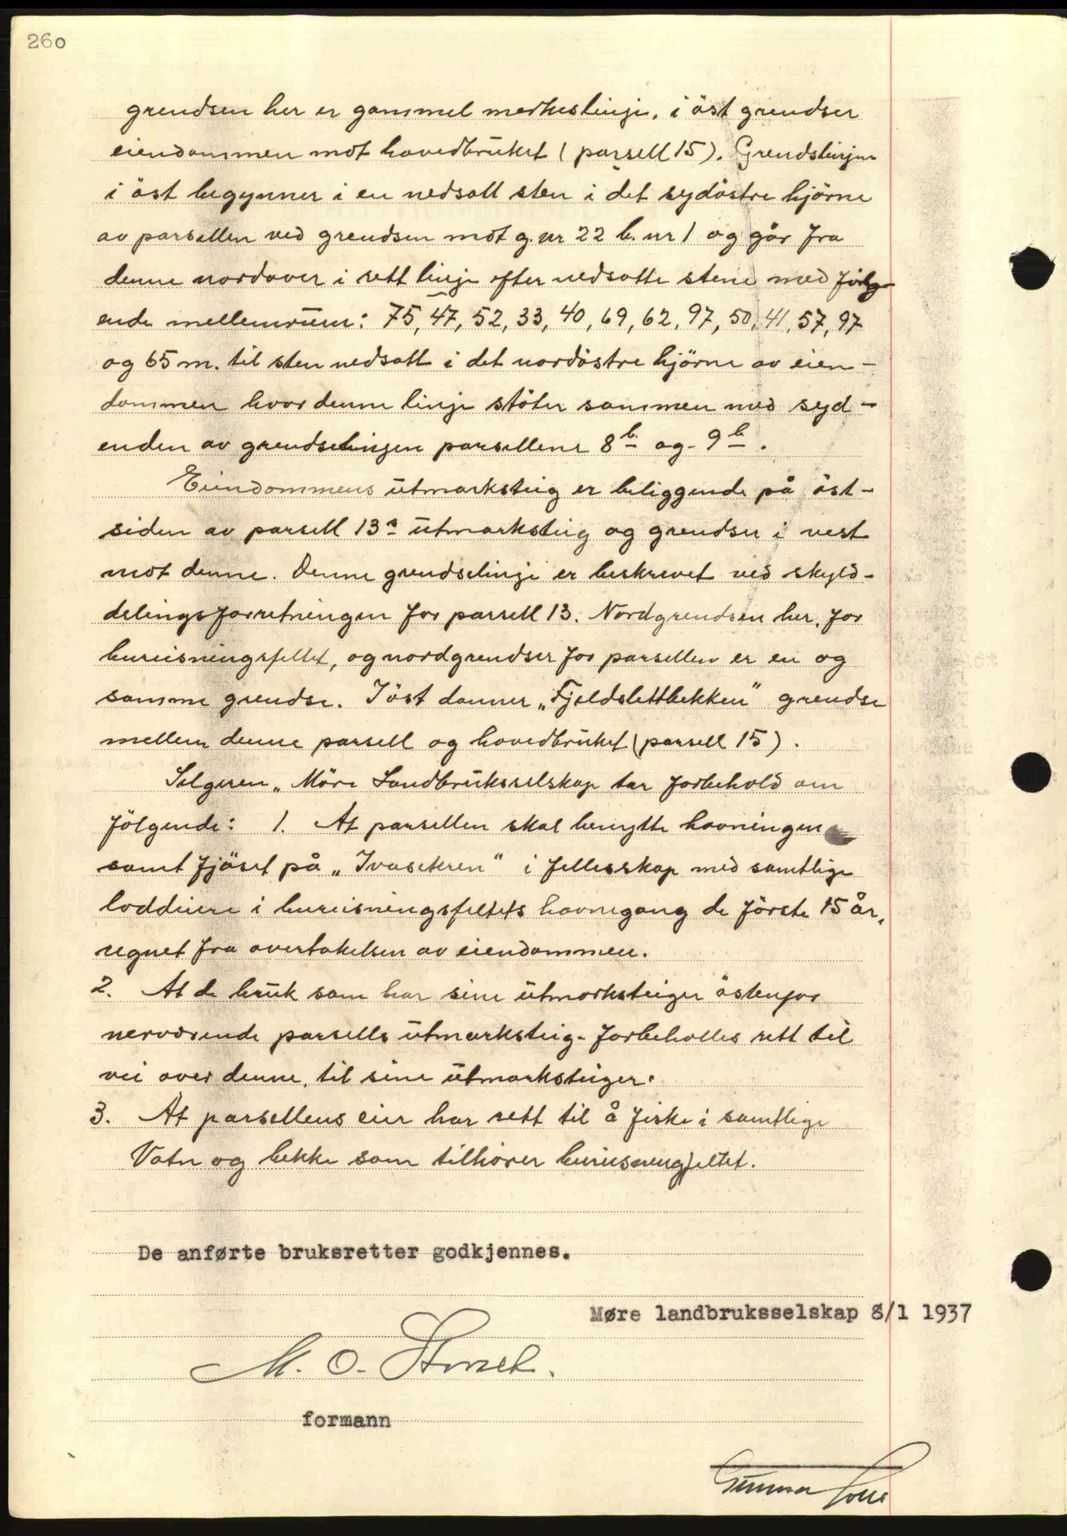 260
grendsen her er gammel merkeslinje. i öst grendser
eiendommen mot hovedbruket ( parsell 15). Grendslinjen
i öst begynner i en nedsatt sten i det sydöstre hjörne
av parsellen ved grendsen mot g. nr 22 b. nr 1 og går fra
denne nordover i rett linje efter nedsatte stene med fölg-
ende mellemrum: 75, 47, 52, 33, 40, 69, 62, 97, 50, 41, 57, 97
og 65 m. til sten nedsatt i det nordöstre hjörne av eien-
dommen hvor denne linje stöter sammen med syd-
enden av grendselinjen parsellene 8 b og 9 b.
Eiendommens utmarksteig er beliggende på öst-
siden av parsell 13 a utmarksteig og grendser i vest
mot denne. Denne grendselinje er beskrevet ved skyld-
delingsforretningen for parsell 13. Nordgrendsen her, for
bureisningsfeltet, og nordgrendser for parsellen er en og
samme grendse. I öst danner „Fjeldslettbekken" grendse
mellem denne parsell og hovedbruket (parsell 15).
Selgeren „ Möre Landbruksselskap tar forbehold om
fölgende: 1. At parsellen skal benytte havningen
samt fjöset på „Ivasetren" i fellesskap med samtlige
loddeiere i bureisningsfeltets havnegang de förste 15 år,
regnet fra overtakelsen av eiendommen.
2. At de bruk som har sine utmarksteiger östenfor
nerværende parsells utmarksteig forbeholdes rett til
vei over denne, til sine utmarksteiger.
3. At parsellens eier har rett til å fiske i samtlige
Vatn og bekke som tilhörer bureisningsfeltet.
De anførte bruksretter godkjennes.
Møre landbruksselskap 8/1 1937
M. O.
formann
Gunnar